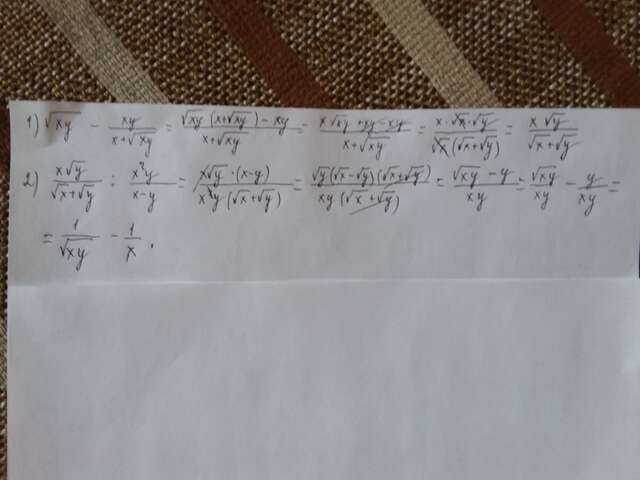 1) √xy − xy/(x+√xy) = (√xy(x+√xy)−xy)/(x+√xy) = (x√xy+xy−xy)/(x+√xy) = (x·√x·√y)/(√x(√x+√y)) = x√y/(√x+√y)
2) x√y/(√x+√y) : x²y/(x−y) = (x√y·(x−y))/(x²y(√x+√y)) = (√y(√x−√y)(√x+√y))/(xy(√x+√y)) = (√xy−y)/xy = √xy/xy − y/xy =
= 1/√xy − 1/x.